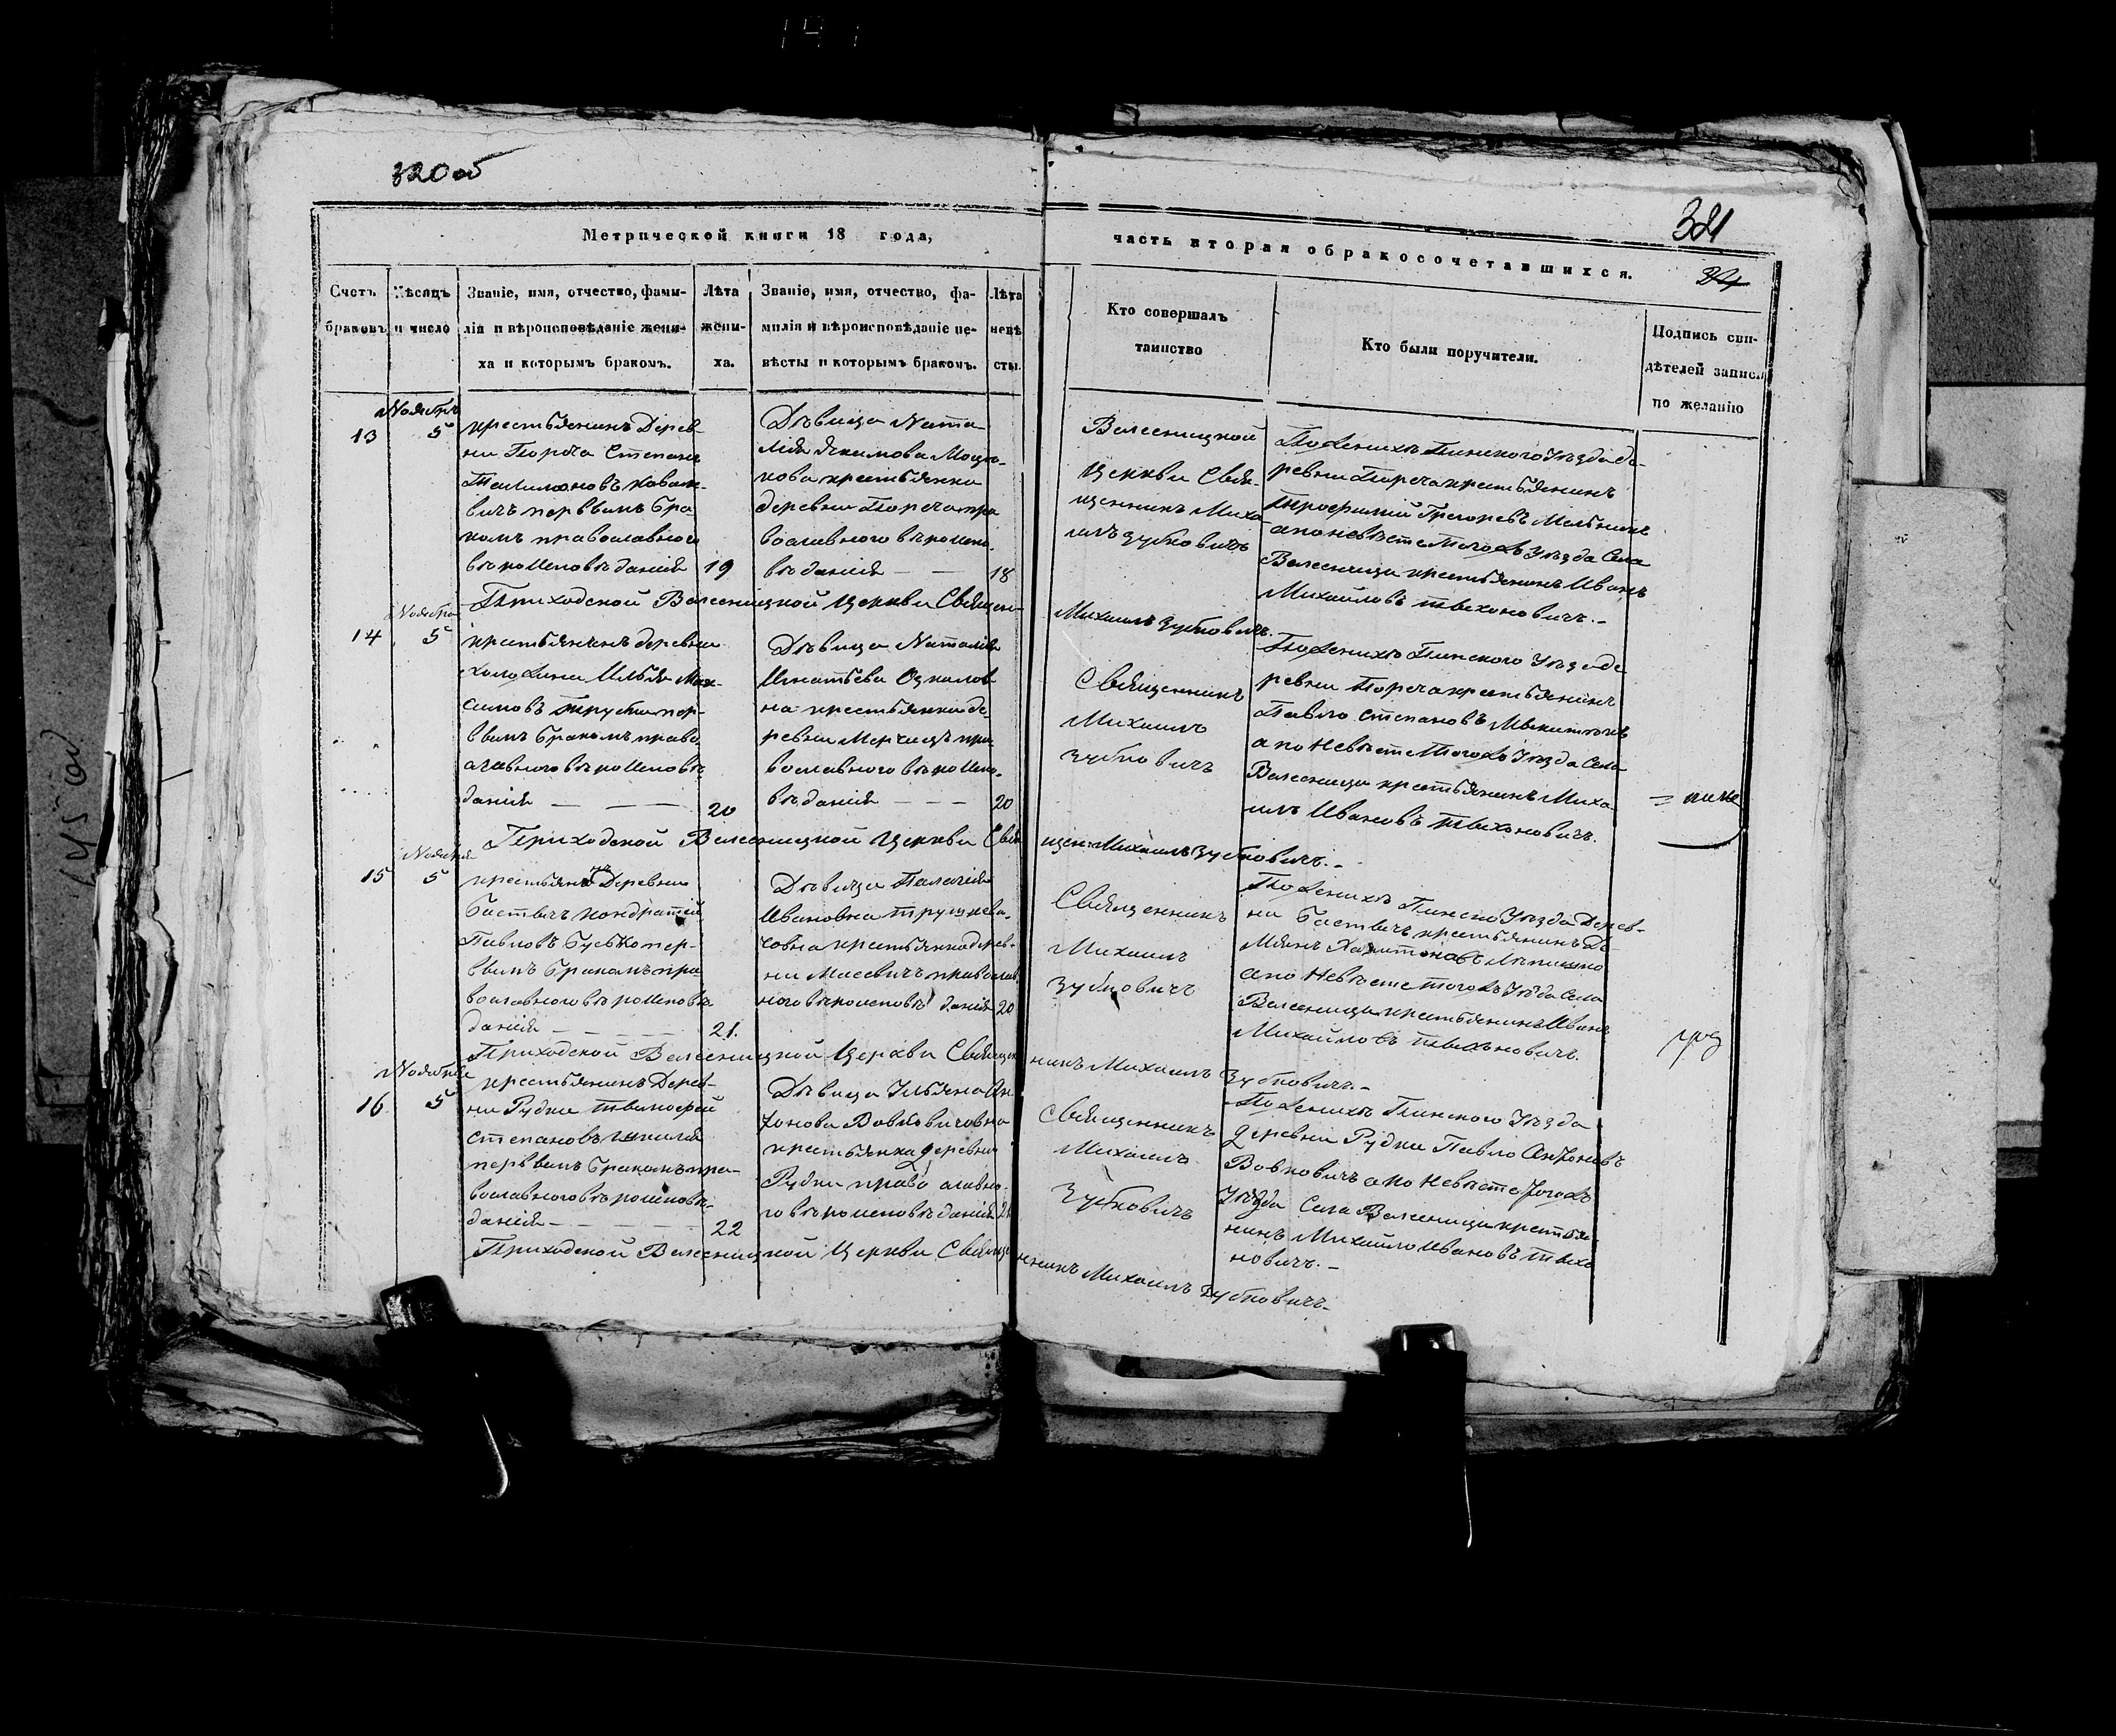 320об
321
Метрической книги 18 года,
часть вторая о бракосочетавшихся.
Счетъ браковъ
Мѣсяцъ и число
Званіе, имя, отчество, фами-
лія и вѣроисповѣданіе жени-
ха и которымъ бракомъ.
Лѣта жени-
ха.
Званіе, имя, отчество, фа-
милія и вѣроисповѣданіе не-
вѣсты и которымъ бракомъ.
Лѣта невѣ
сты.
Кто совершалъ
таинство
Кто были поручители.
Подпись сви-
дѣтелей записи
по желанію
13
Ноября
5
крестьянинъ Дерев-
ни Пореча Степанъ
бра
комъ православного
вѣроисповѣданія
19
Дѣвица Ната
лія Якимова
крестьянка
деревни Пореча пра
вославного вѣроиспо-
вѣданія
18
Велесницкой
Церкви Свя-
щенникъ Миха
илъ Зубковичъ
По Женихѣ Пинского Уѣзда де-
ревни Пореча крестьянинъ
Трофимій Григоревъ Мельникъ
а по невѣсте того Жъ Уѣзда Села
Велесница крестьянинъ Иванъ
Михайловъ Тихоновичъ.-
Приходской Велесницкой Церкви Священ-
Михаилъ Зубковичъ.
14
Ноября
5
крестьянинъ деревни
Илья Мак-
симовъ пер-
вымъ бракомъ право
славного вѣроисповѣ
данія
20
Дѣвица Наталія
Игнатьева
на крестьянка де-
ревни пра
вославного вѣроиспо-
вѣданія
20
Священникъ
Михаилъ
Зубковичъ
По Женихѣ Пинского Уѣзда де
ревни Пореча крестьянинъ
Павло Степановъ
а по Невѣсте того Жъ Уѣзда Села
Велесница крестьянинъ Миха
илъ Ивановъ Тихоновичъ.
Приходской Велесницкой Церкви Свя
щен: Михаилъ Зубковичъ.-
15
Ноября
5
Деревни
Кондратій
Павловъ пер-
вымъ бракомъ пра
вославного вѣроисповѣ
данія
21.
Дѣвица Пелагія
Ивановна
крестьянка дерев-
ни православ
ного вѣроисповѣданія
20
Священникъ
Михаилъ
Зубковичъ
По Женихѣ Пинско Уѣзда Дерев-
ни крестьянинъ
Харитоновъ
а по Невѣсте того Жъ Уѣзда Села
Велесница крестьянинъ Иванъ
Михайловъ Тихоновичъ.
Приходской Велесницкой Церкви Священ
никъ Михаилъ Зубковичъ.-
16
Ноября
5
крестьянинъ Дерев-
ни Рудки Тимофей
Степановъ
первымъ бракомъ пра-
вославного вѣроисповѣ-
данія
22
Дѣвица Ульяна Ан
тонова
крестьянка деревни
Рудки право славно-
го вѣроисповѣданія
Священникъ
Михаилъ
Зубковичъ
По Женихѣ Пинского Уѣзда
деревни Рудки Павло Антоновъ
Вовковичъ а по Невѣсте того Жъ
Уѣзда Села Велесница крестья-
нинъ Михайло Ивановъ Тихо
новичъ.-
Приходской Велесницкой Церкви Священ
никъ Михаилъ Зубковичъ.-